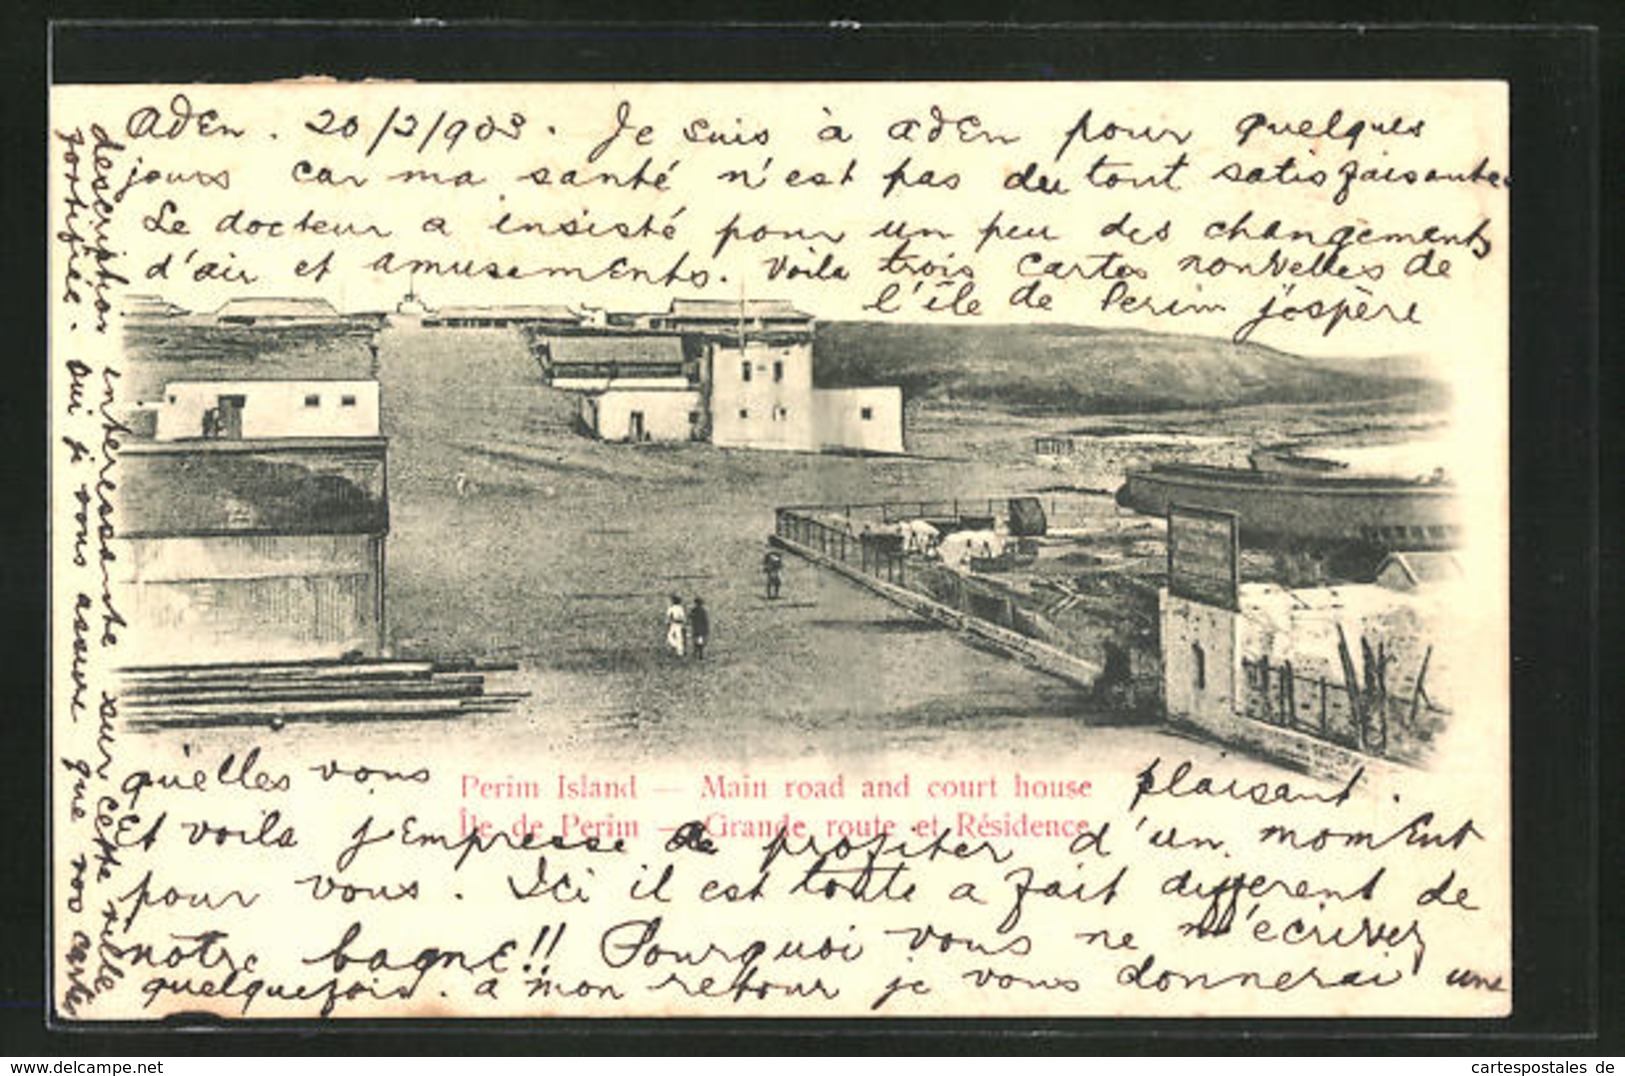 Aden. 20/2/903. Je suis à Aden pour quelques
jours car ma santé n'est pas du tout satisfaisante.
Le docteur a insisté pour un peu des changements
d'air et amusements. Voila trois cartes nouvelles de
l'île de Perim j'éspère
qu'elles vous plaisant.
Perim Island — Main road and court house
Île de Perim — Grande route et Résidence
Et voila j'empresse de profiter d'un moment
pour vous. Ici il est toute a fait different de
notre bagne!! Pourquoi vous ne m'écrivez
quelquefois. a mon retour je vous donnerai une
description interessante sur cette ville
fortifiée. Oui je vous assure que vos cartes
cartespostales de
www.delcampe.net